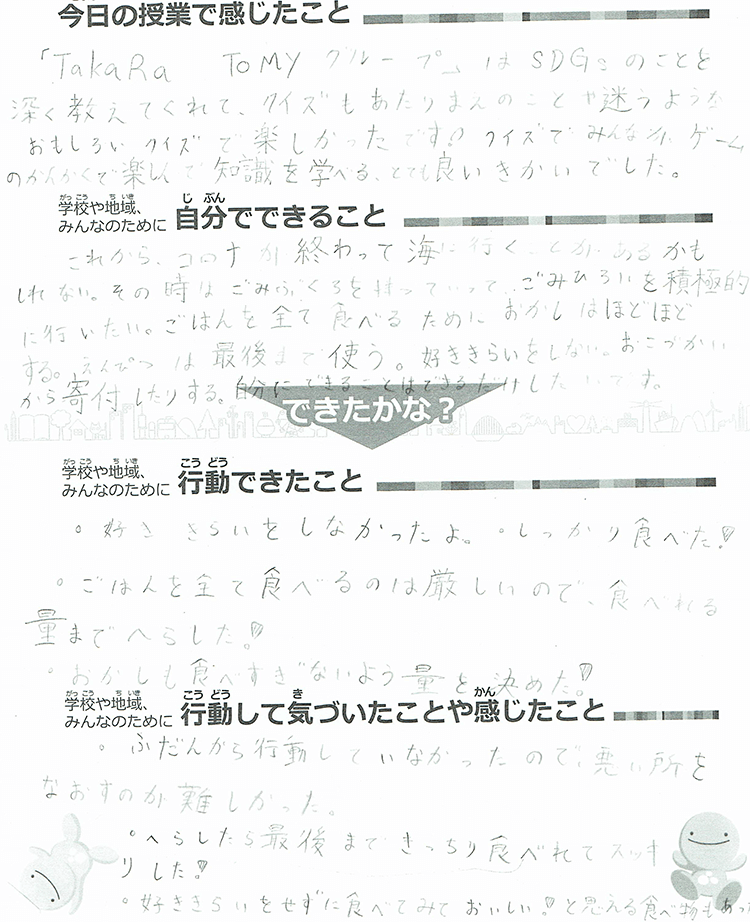 今日の授業で感じたこと
「TakaRa TOMYグループ」はSDGsのことを
深く教えてくれて、クイズもあたりまえのことや迷うような
おもしろいクイズで楽しかったです!クイズでみんながゲーム
のかんかくで楽しんで知識を学べる、とても良いきかいでした。
がっこう ちいき
学校や地域、
みんなのために
じぶん
自分でできること
これから、コロナが終わって海に行くことがあるかも
しれない。その時はごみぶくろを持っていって、ごみひろいを積極的
に行いたい。ごはんを全て食べるためにおかしはほどほど
する。えんぴつは最後まで使う。好ききらいをしない。おこづかい
から寄付したりする。自分にできることはできるだけしたいです。
できたかな?
がっこう ちいき
学校や地域、
みんなのために
こうどう
行動できたこと
。好ききらいをしなかったよ。。しっかり食べた!
。ごはんを全て食べるのは厳しいので、食べれる
量までへらした!
。おかしも食べすぎないよう量を決めた!
がっこう ちいき
学校や地域、
みんなのために
こうどう き かん
行動して気づいたことや感じたこと
。ふだんから行動していなかったので、悪い所を
なおすのが難しかった。
。へらしたら最後まできっちり食べれてスッキ
リした!
。好ききらいをせずに食べてみておいしい!と思える食べ物もあっ